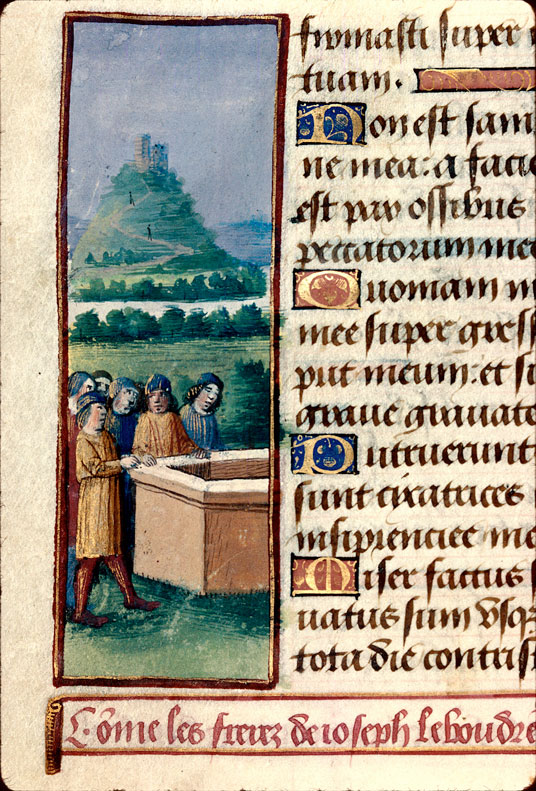 firmasti super
tuam.
Non est sani
ne mea: a facie
est pax ossibus
peccatorum me
Quoniam in
mee super gress
put meum: et si
graue grauate
Putruerunt
sunt cicatrices
insipienciee me
Miser factus s
uatus sum vsq
tota die contris
Come les freres de ioseph le boudre